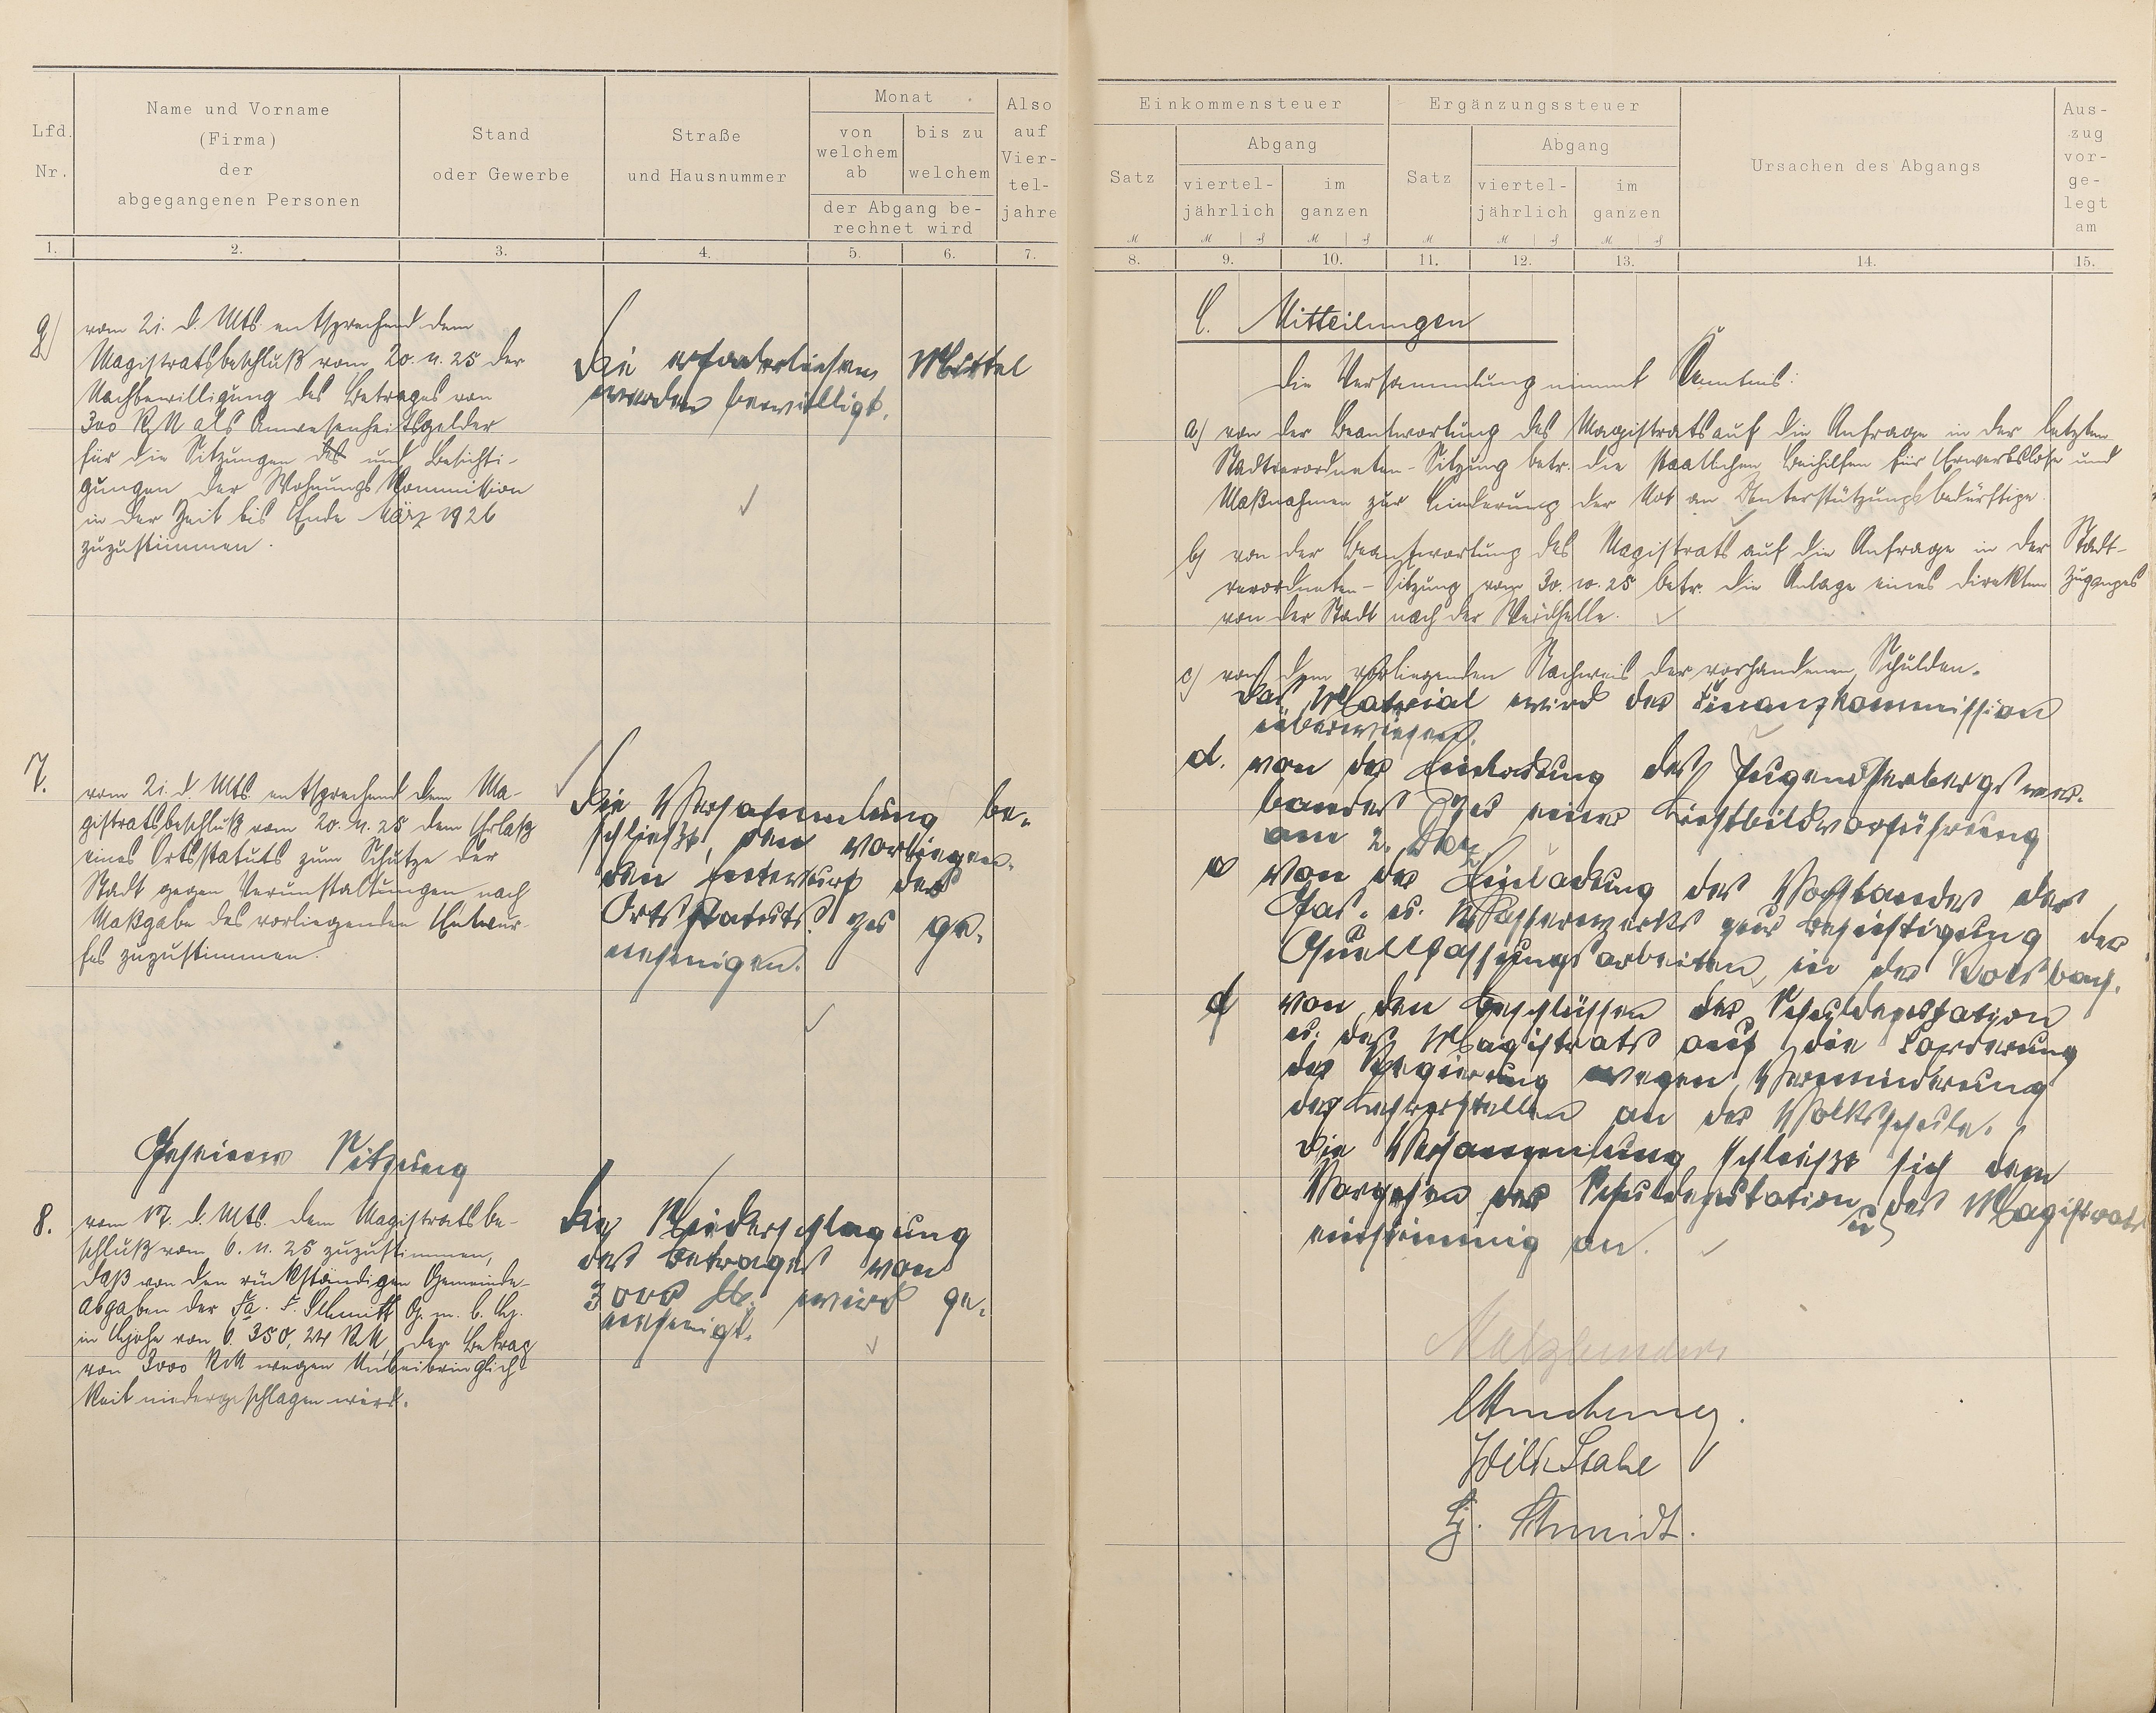 Lfd.
Nr.
Name und Vorname
(Firma)
der
abgegangenen Personen
Stand
oder Gewerbe
Straße
und Hausnummer
Monat
von
welchem
ab
bis zu
welchem
der Abgang be-
rechnet wird
Also
auf
Vier-
tel-
jahre
1. 2. 3. 4. 5. 6. 7.
g)
vom 21. d. Mts. entsprechend dem
Magistratsbeschluß vom 20. 11. 25 der
Nachbewilligung des Betrages von
300 RM als Anwesenheitsgelder
für die Sitzungen des und Besichti-
gungen der Wohnungs Kommission
in der Zeit bis Ende März 1926
zuzustimmen.
Die erforderlichen Mittel
werden bewilligt.
7.
vom 21. d. Mts. entsprechend dem Ma-
gistratsbeschluß vom 20. 11. 25 dem Erlaß
eines Ortsstatuts zum Schutze der
Stadt gegen Verunstaltungen nach
Maßgabe des vorliegenden Entwur-
fes zuzustimmen.
Die Versammlung be-
schließt, den vorliegen-
den Entwurf des
Ortsstatuts zu ge-
nehmigen.
Geheime Sitzung
8.
vom 17. d. Mts. dem Magistratsbe-
schluß vom 6. 11. 25 zuzustimmen,
daß von den rückständigen Gemeinde-
abgaben der Fa. F. Schmitt G. m. b. H.
in Höhe von 6 350,24 RM, der Betrag
von 3000 RM wegen Unbeibringlich-
keit niedergeschlagen wird.
Die Niederschlagung
des Betrages von
3000 M. wird ge-
nehmigt.
Einkommensteuer
Satz
Abgang
viertel-
jährlich
im
ganzen
Ergänzungssteuer
Satz
Abgang
viertel-
jährlich
im
ganzen
Ursachen des Abgangs
Aus-
zug
vor-
ge-
legt
am
8. 9. 10. 11. 12. 13. 14. 15.
C. Mitteilungen
Die Versammlung nimmt Kenntnis:
a) von der Beantwortung des Magistrats auf die Anfrage in der letzten
Stadtverordneten-Sitzung betr. die staatlichen Beihilfen für Erwerbslose und
Maßnahmen zur Linderung der Not an Unterstützungsbedürftige.
b) von der Beantwortung des Magistrats auf die Anfrage in der Stadt-
verordneten-Sitzung vom 30. 10. 25 betr. die Anlage eines direkten Zuganges
von der Stadt nach der
c) von dem vorliegenden Nachweis der vorhandenen Schulden.
Das Material wird der Finanzkommission
überwiesen.
d. von der Einladung des Jugendherbergsver-
bandes zu einer Lichtbildvorführung
am 2. Dez.
e von der Einladung des Vorstandes des
Gas- u. Wasserwerks zur Besichtigung der
Quellfassungsarbeiten in der
von den Beschlüssen der Schuldeputation
u. des Magistrats auf die Forderung
der Regierung wegen Verminderung
der Lehrerstellen an der Volksschule.
Die Versammlung schließt sich dem
Vorgehen der Schuldeputation u. des Magistrats
einstimmig an.
Wilh.
Schmidt.